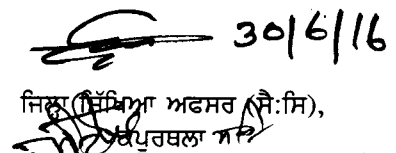 30/6/16
ਜਿਲ੍ਹਾ ਸਿੱਖਿਆ ਅਫਸਰ (ਸੈ:ਸਿ),
ਕਪੂਰਥਲਾ